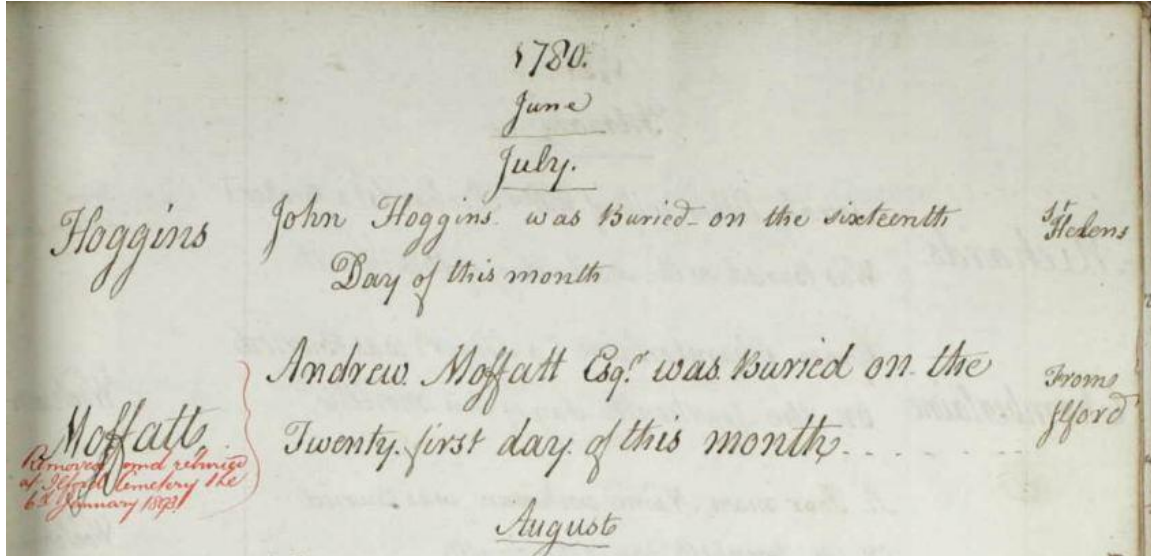 1780.
June
July.
Hoggins
John Hoggins was Buried on the sixteenth
Day of this month
St Helens
Moffatt
Removed and reburied
at Ilford Cemetery the
6th January
Andrew Moffatt Esqr. was Buried on the
Twenty first day of this month
From
Ilford
August